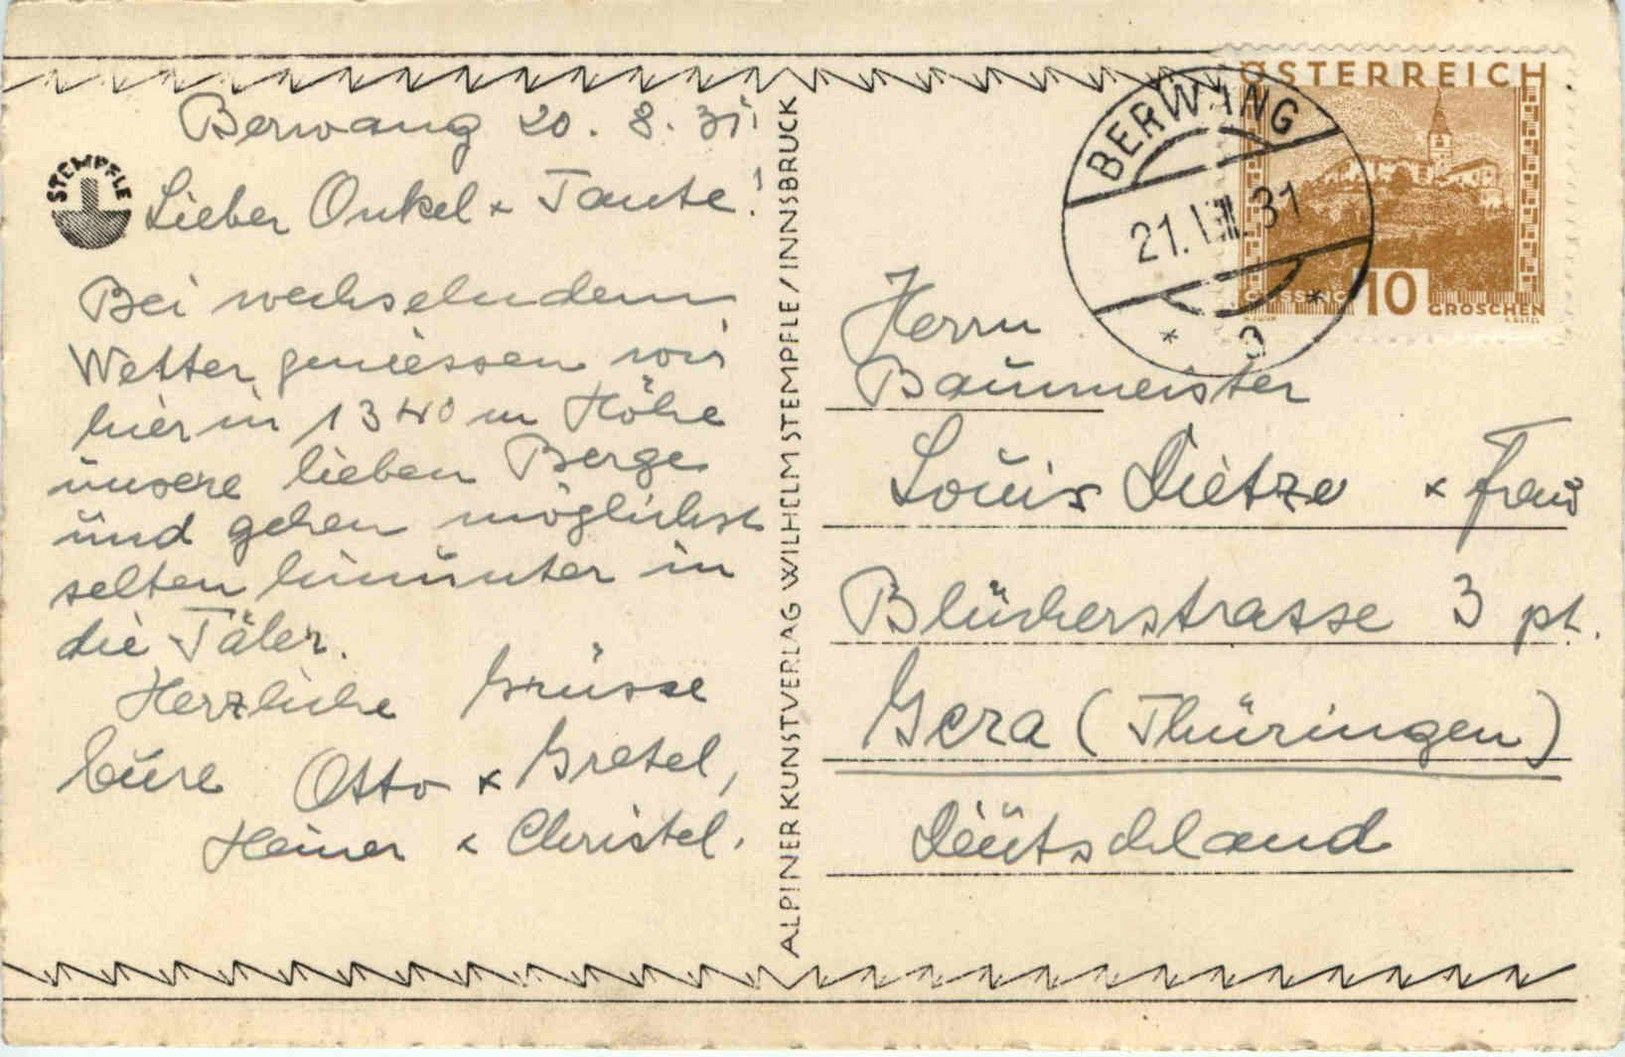 Berwang 20. 8. 31.
STEMPFLE
Lieber Onkel & Tante!
Bei wechselndem
Wetter geniessen wir
hier in 1340 m Höhe
unsere lieben Berge
und gehen möglichst
selten hinunter in
die Täler.
Herzliche Grüsse
Eure Otto & Gretel,
Heiner & Christel.
ALPINER KUNSTVERLAG WILHELM STEMPFLE / INNSBRUCK
ÖSTERREICH
10
GROSCHEN
BERWANG
21. VIII. 31
* *
Herrn
Baumeister
Louis Dietze & Frau
Blücherstrasse 3 pt.
Gera (Thüringen)
Deutschland